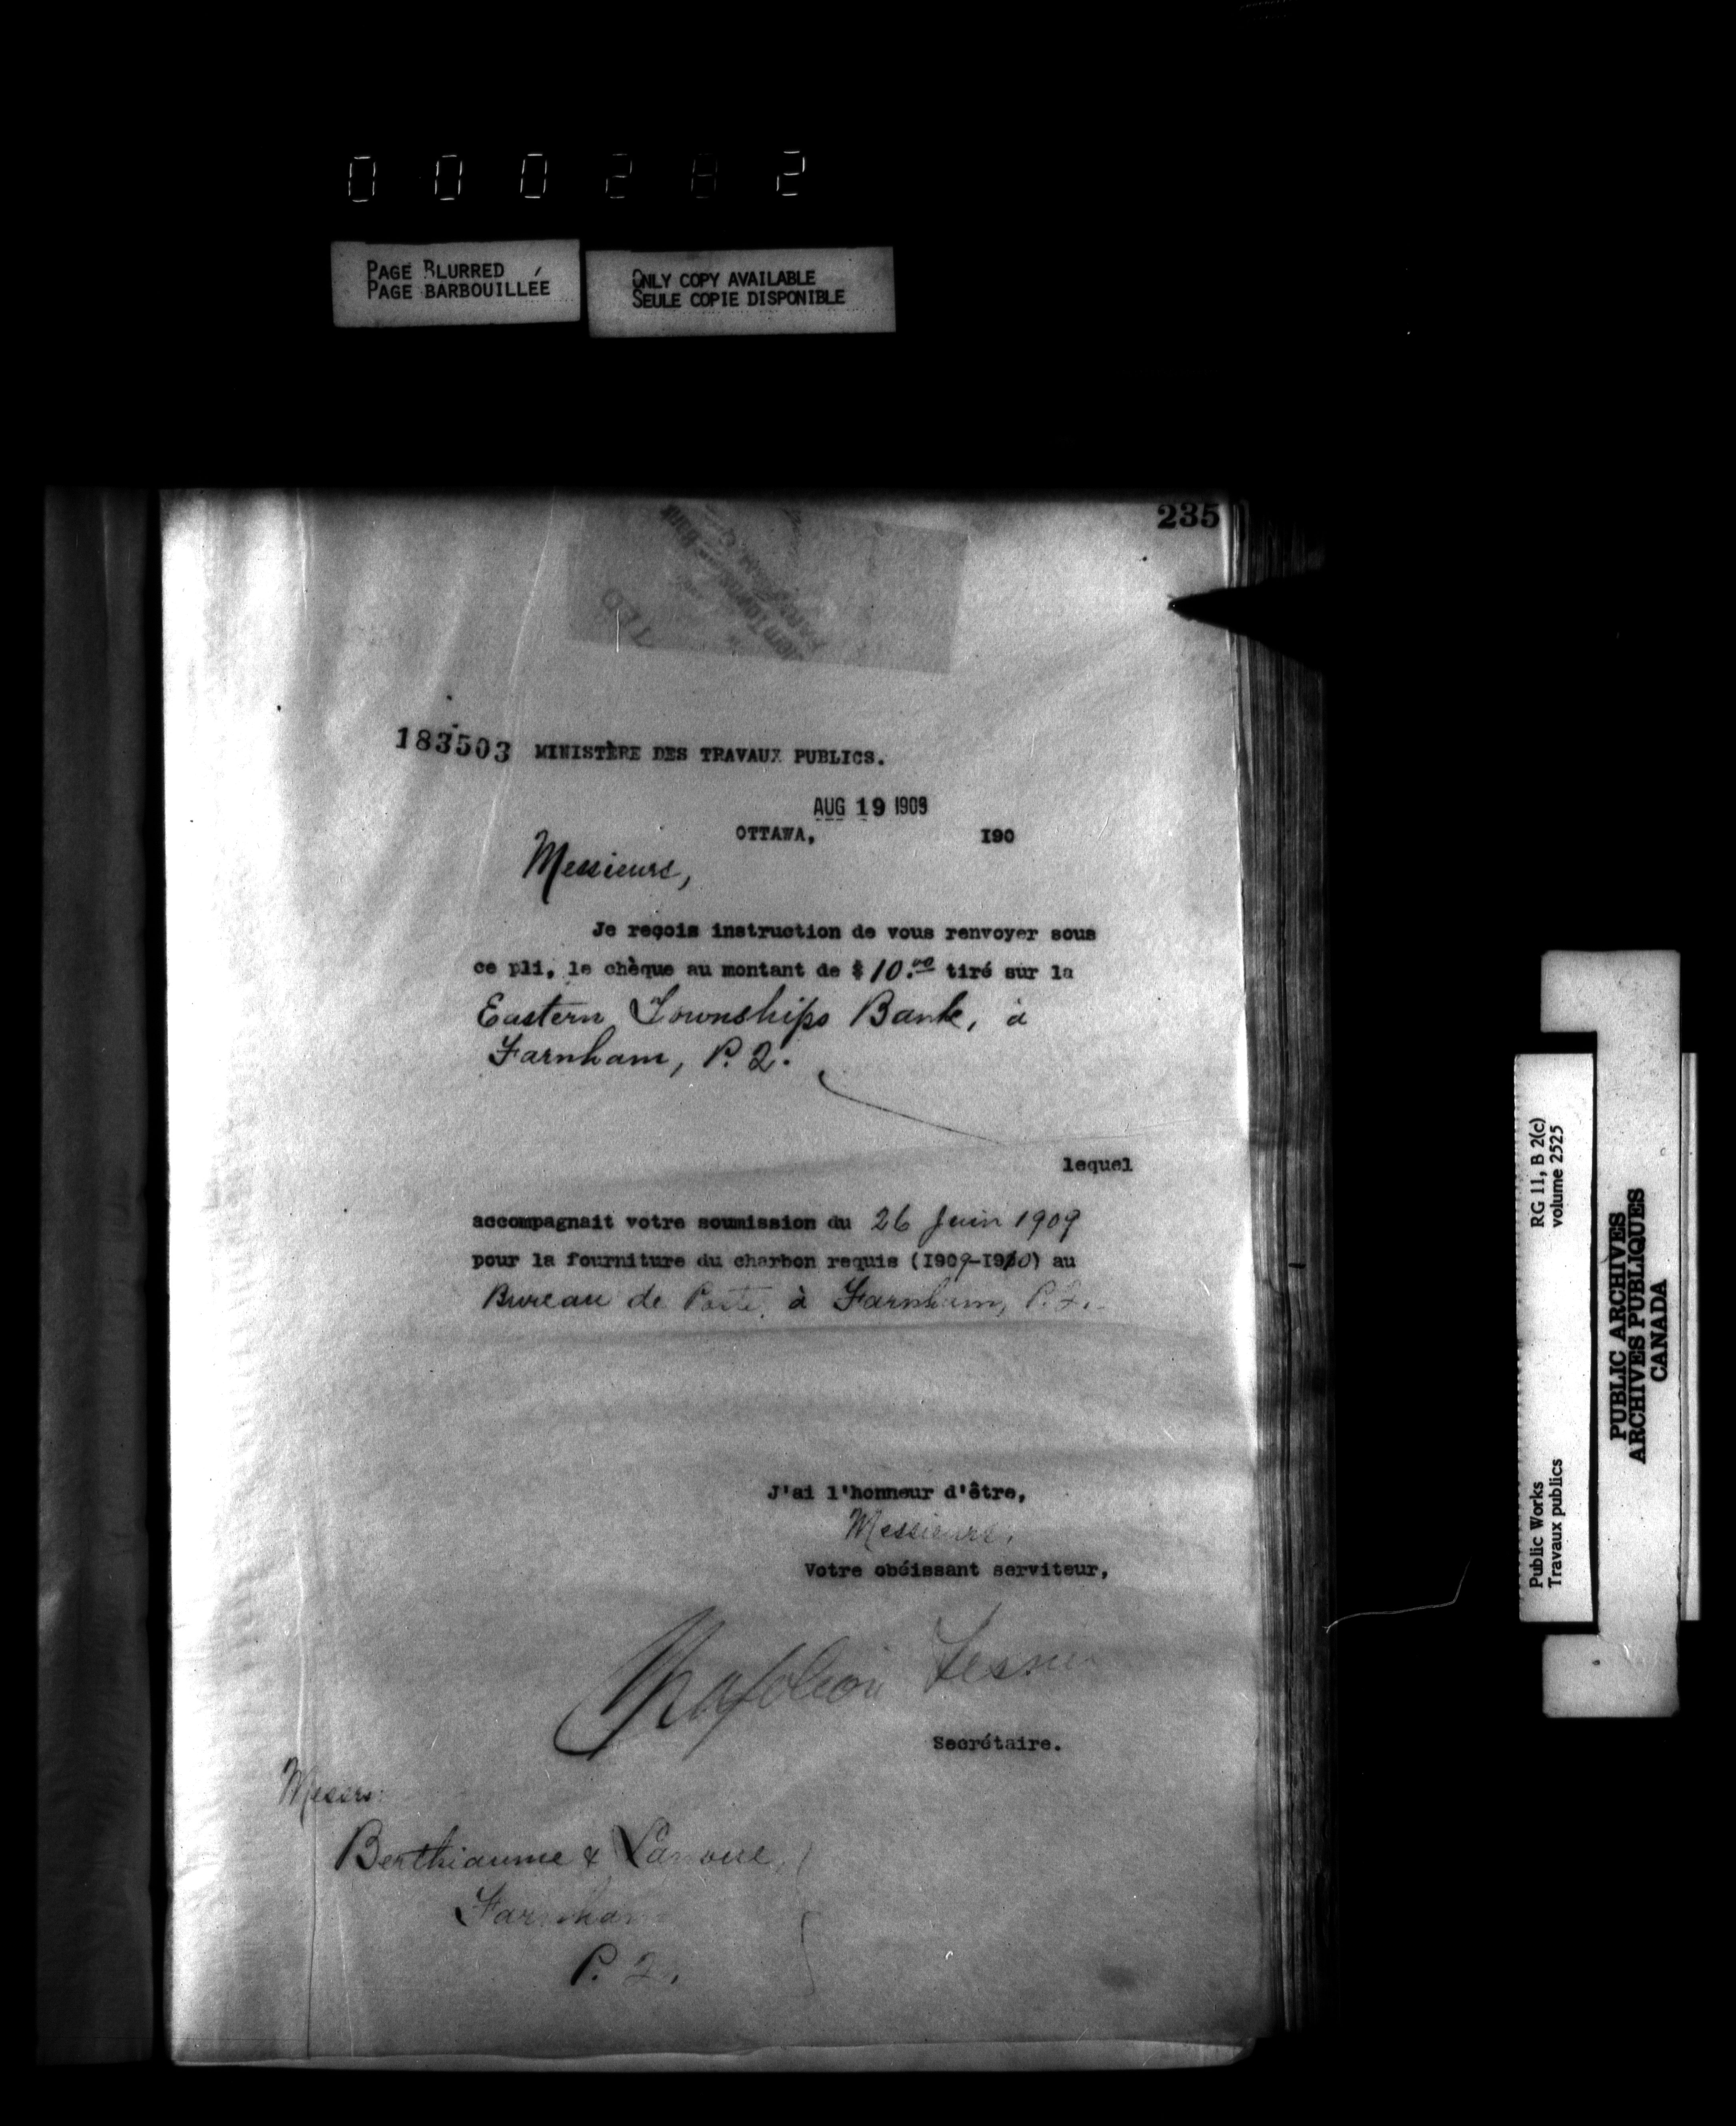 000282
PAGE BLURRED
PAGE BARBOUILLÉE
ONLY COPY AVAILABLE
SEULE COPIE DISPONIBLE
235
183503 MINISTÈRE DES TRAVAUX PUBLICS.
AUG 19 1909
OTTAWA, I90
Messieurs,
Je reçois instruction de vous renvoyer sous
ce pli, le chèque au montant de $ 10.00 tiré sur la
Eastern Townships Bank, à
Farnham, P. Q.
lequel
accompagnait votre soumission du 26 Juin 1909
pour la fourniture du charbon requis (I909-I910) au
Bureau de Poste à Farnham, P. Q.
J'ai l'honneur d'être,
Messieurs,
Votre obéissant serviteur,
Napoléon Tessier
Secrétaire.
Messrs
Berthiaume & Lanoue,
Farnham
P. Q.
RG 11, B 2(c)
volume 2525
Public Works
Travaux publics
PUBLIC ARCHIVES
ARCHIVES PUBLIQUES
CANADA